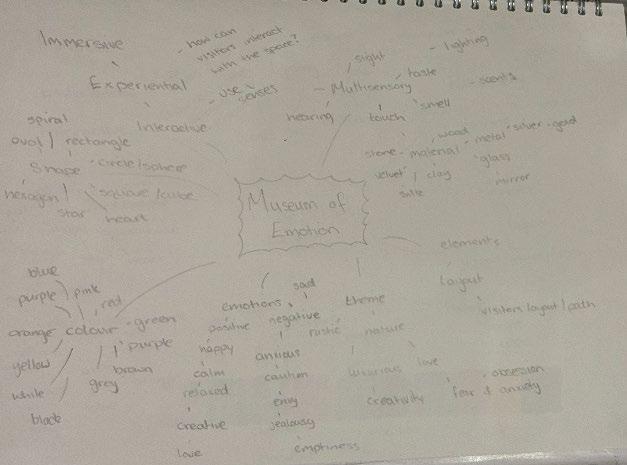 Immersive
Experiential
Interactive
- how can
visitors interact
with the space?
- use senses
- Multisensory
sight
taste
smell
touch
hearing
- lighting
- scents
material
wood
metal
silver - gold
glass
mirror
stone
velvet / clay
silk
spiral
oval / rectangle
Shape - circle/sphere
hexagon
square/cube
star
heart
Museum of
Emotion
elements
layout
visitors layout/path
blue
purple
pink
red
orange colour - green
yellow
purple
brown
white
grey
black
emotions
positive
happy
calm
relaxed
creative
love
sad
negative
anxious
caution
envy
jealousy
emptiness
theme
rustic
nature
luxurious
love
creativity
- obsession
fear & anxiety